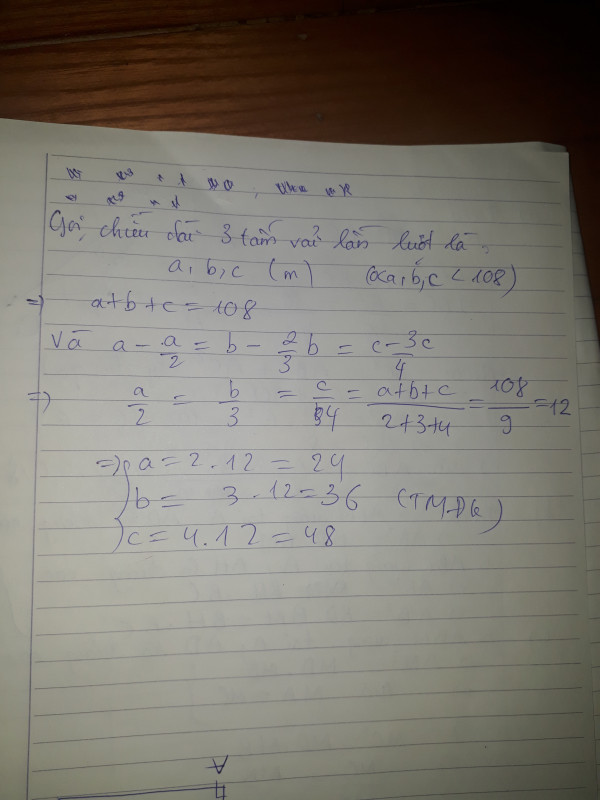 Gọi, chiều dài 3 tấm vải lần lượt là :
a, b, c (m) (0<a, b, c < 108)
=> a+b+c = 108
Và a - a/2 = b - 2/3 b = c - 3c/4
=> a/2 = b/3 = c/4 = a+b+c/2+3+4 = 108/9 = 12
=> { a = 2.12 = 24
b = 3.12 = 36 (TMĐK)
c = 4.12 = 48
A